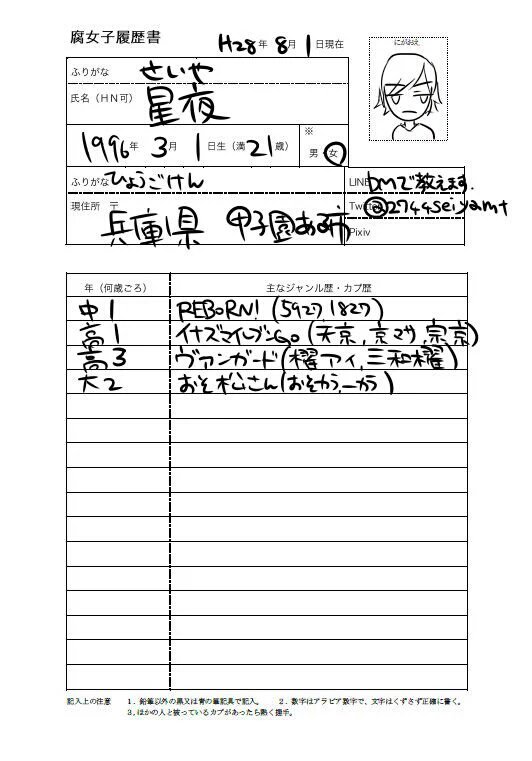 腐女子履歴書
H28年 8月 1日現在
にがおえ
ふりがな せいや
氏名(HN可) 星夜
1996年 3月 1日生(満21歳)
※
男・女
ふりがな ひょうごけん
現住所 〒
兵庫県 甲子園ある所
LINE DMで教えます.
Twitter @2744seiyamt
Pixiv
年(何歳ごろ) 主なジャンル歴・カプ歴
中1 REBORN! (5927 1827)
高1 イナズマイレブンGo (天京, 京マサ, 宗京)
高3 ヴァンガード(櫂アイ, 三和櫂)
大2 おそ松さん(おそカラ, 一カラ)
記入上の注意 1.鉛筆以外の黒又は青の筆記具で記入。 2.数字はアラビア数字で、文字はくずさず正確に書く。
3.ほかの人と被っているカプがあったら熱く握手。